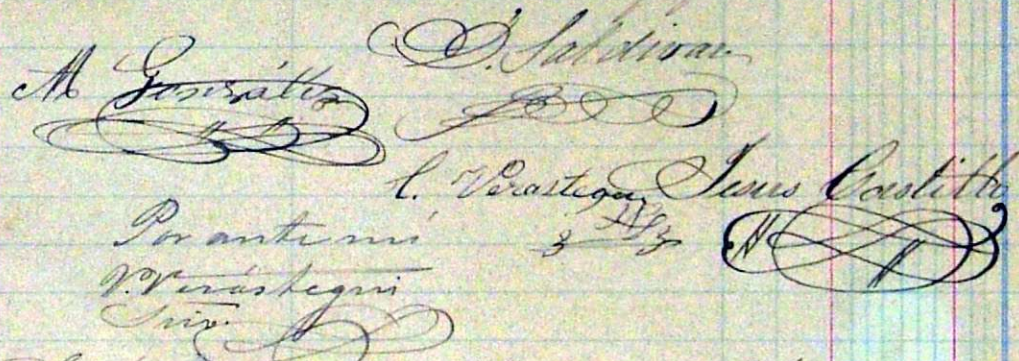 M González
D. Saldivar
C. Verastegui
Jesus Castillo
Por ante mi
V. Verástegui
Srio.